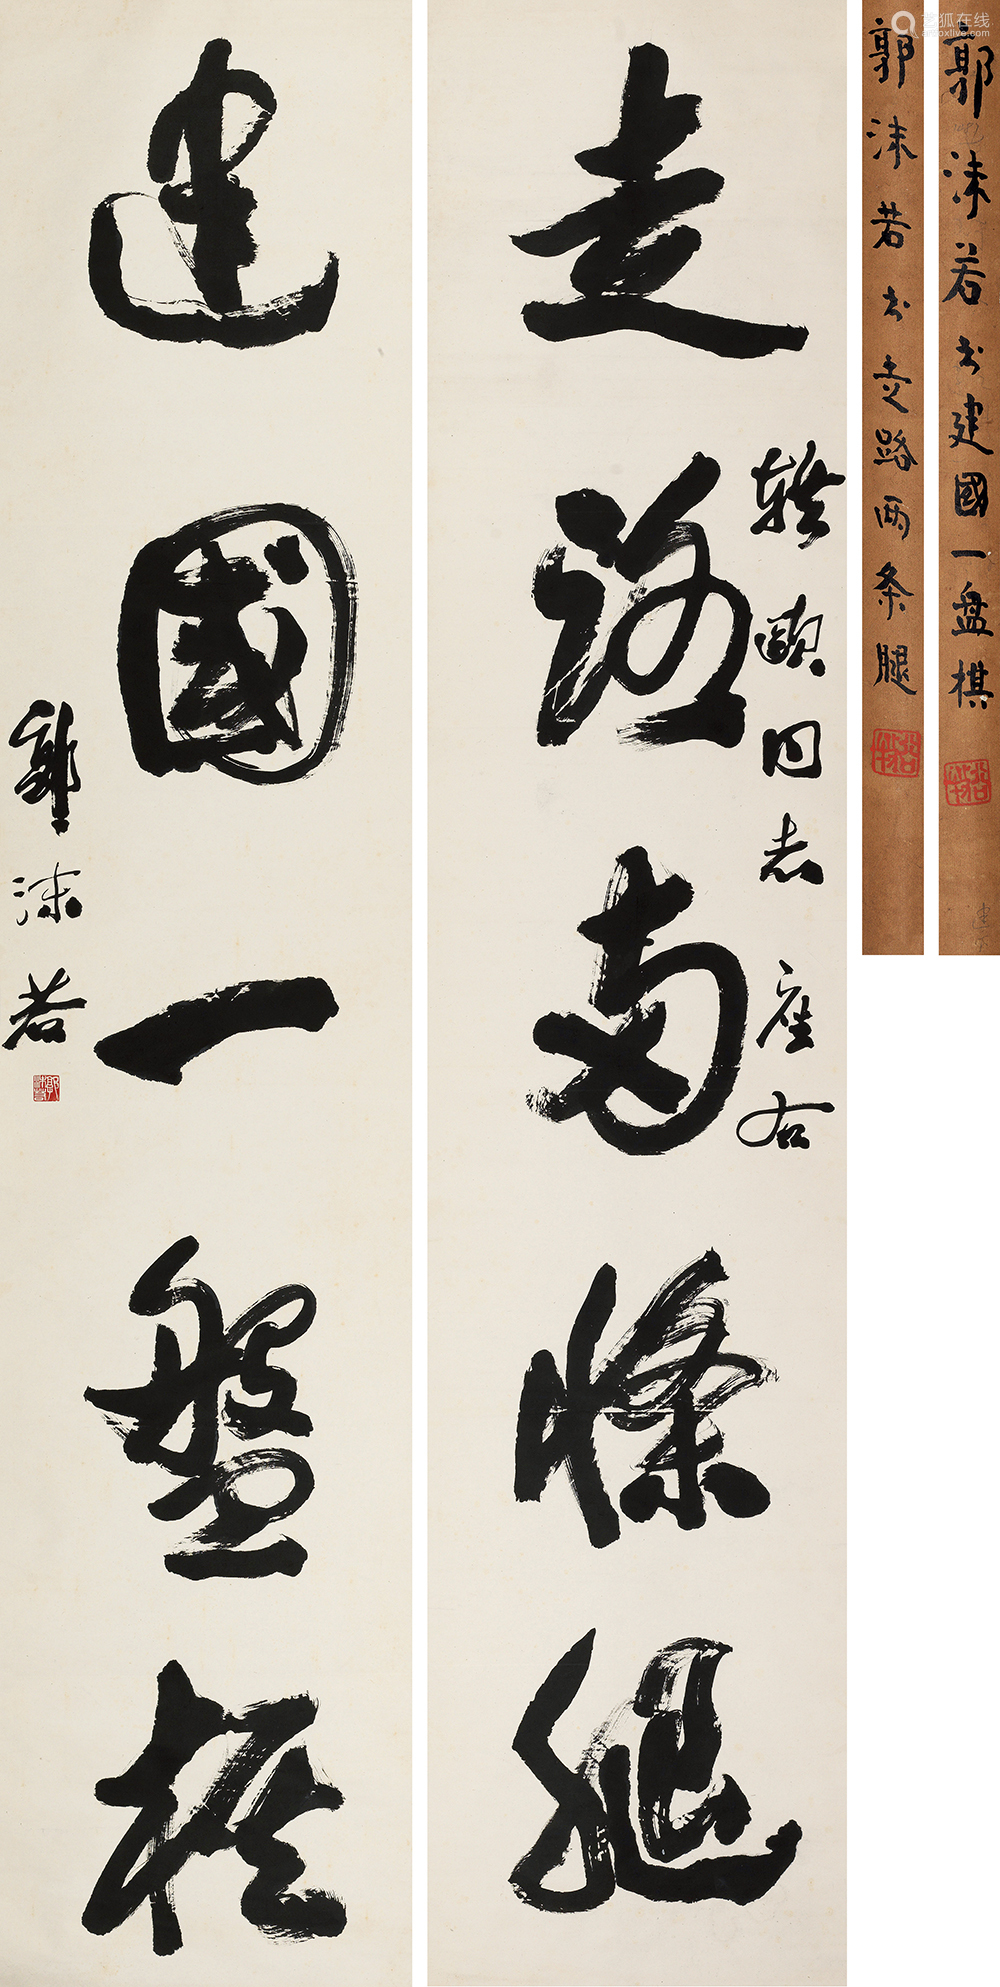 郭沫若书建國一盘棋
郭沫若书走路两条腿
走路两條腿
同志座右
建國一盤棋
郭沫若
艺狐在线
artfoxlive.com